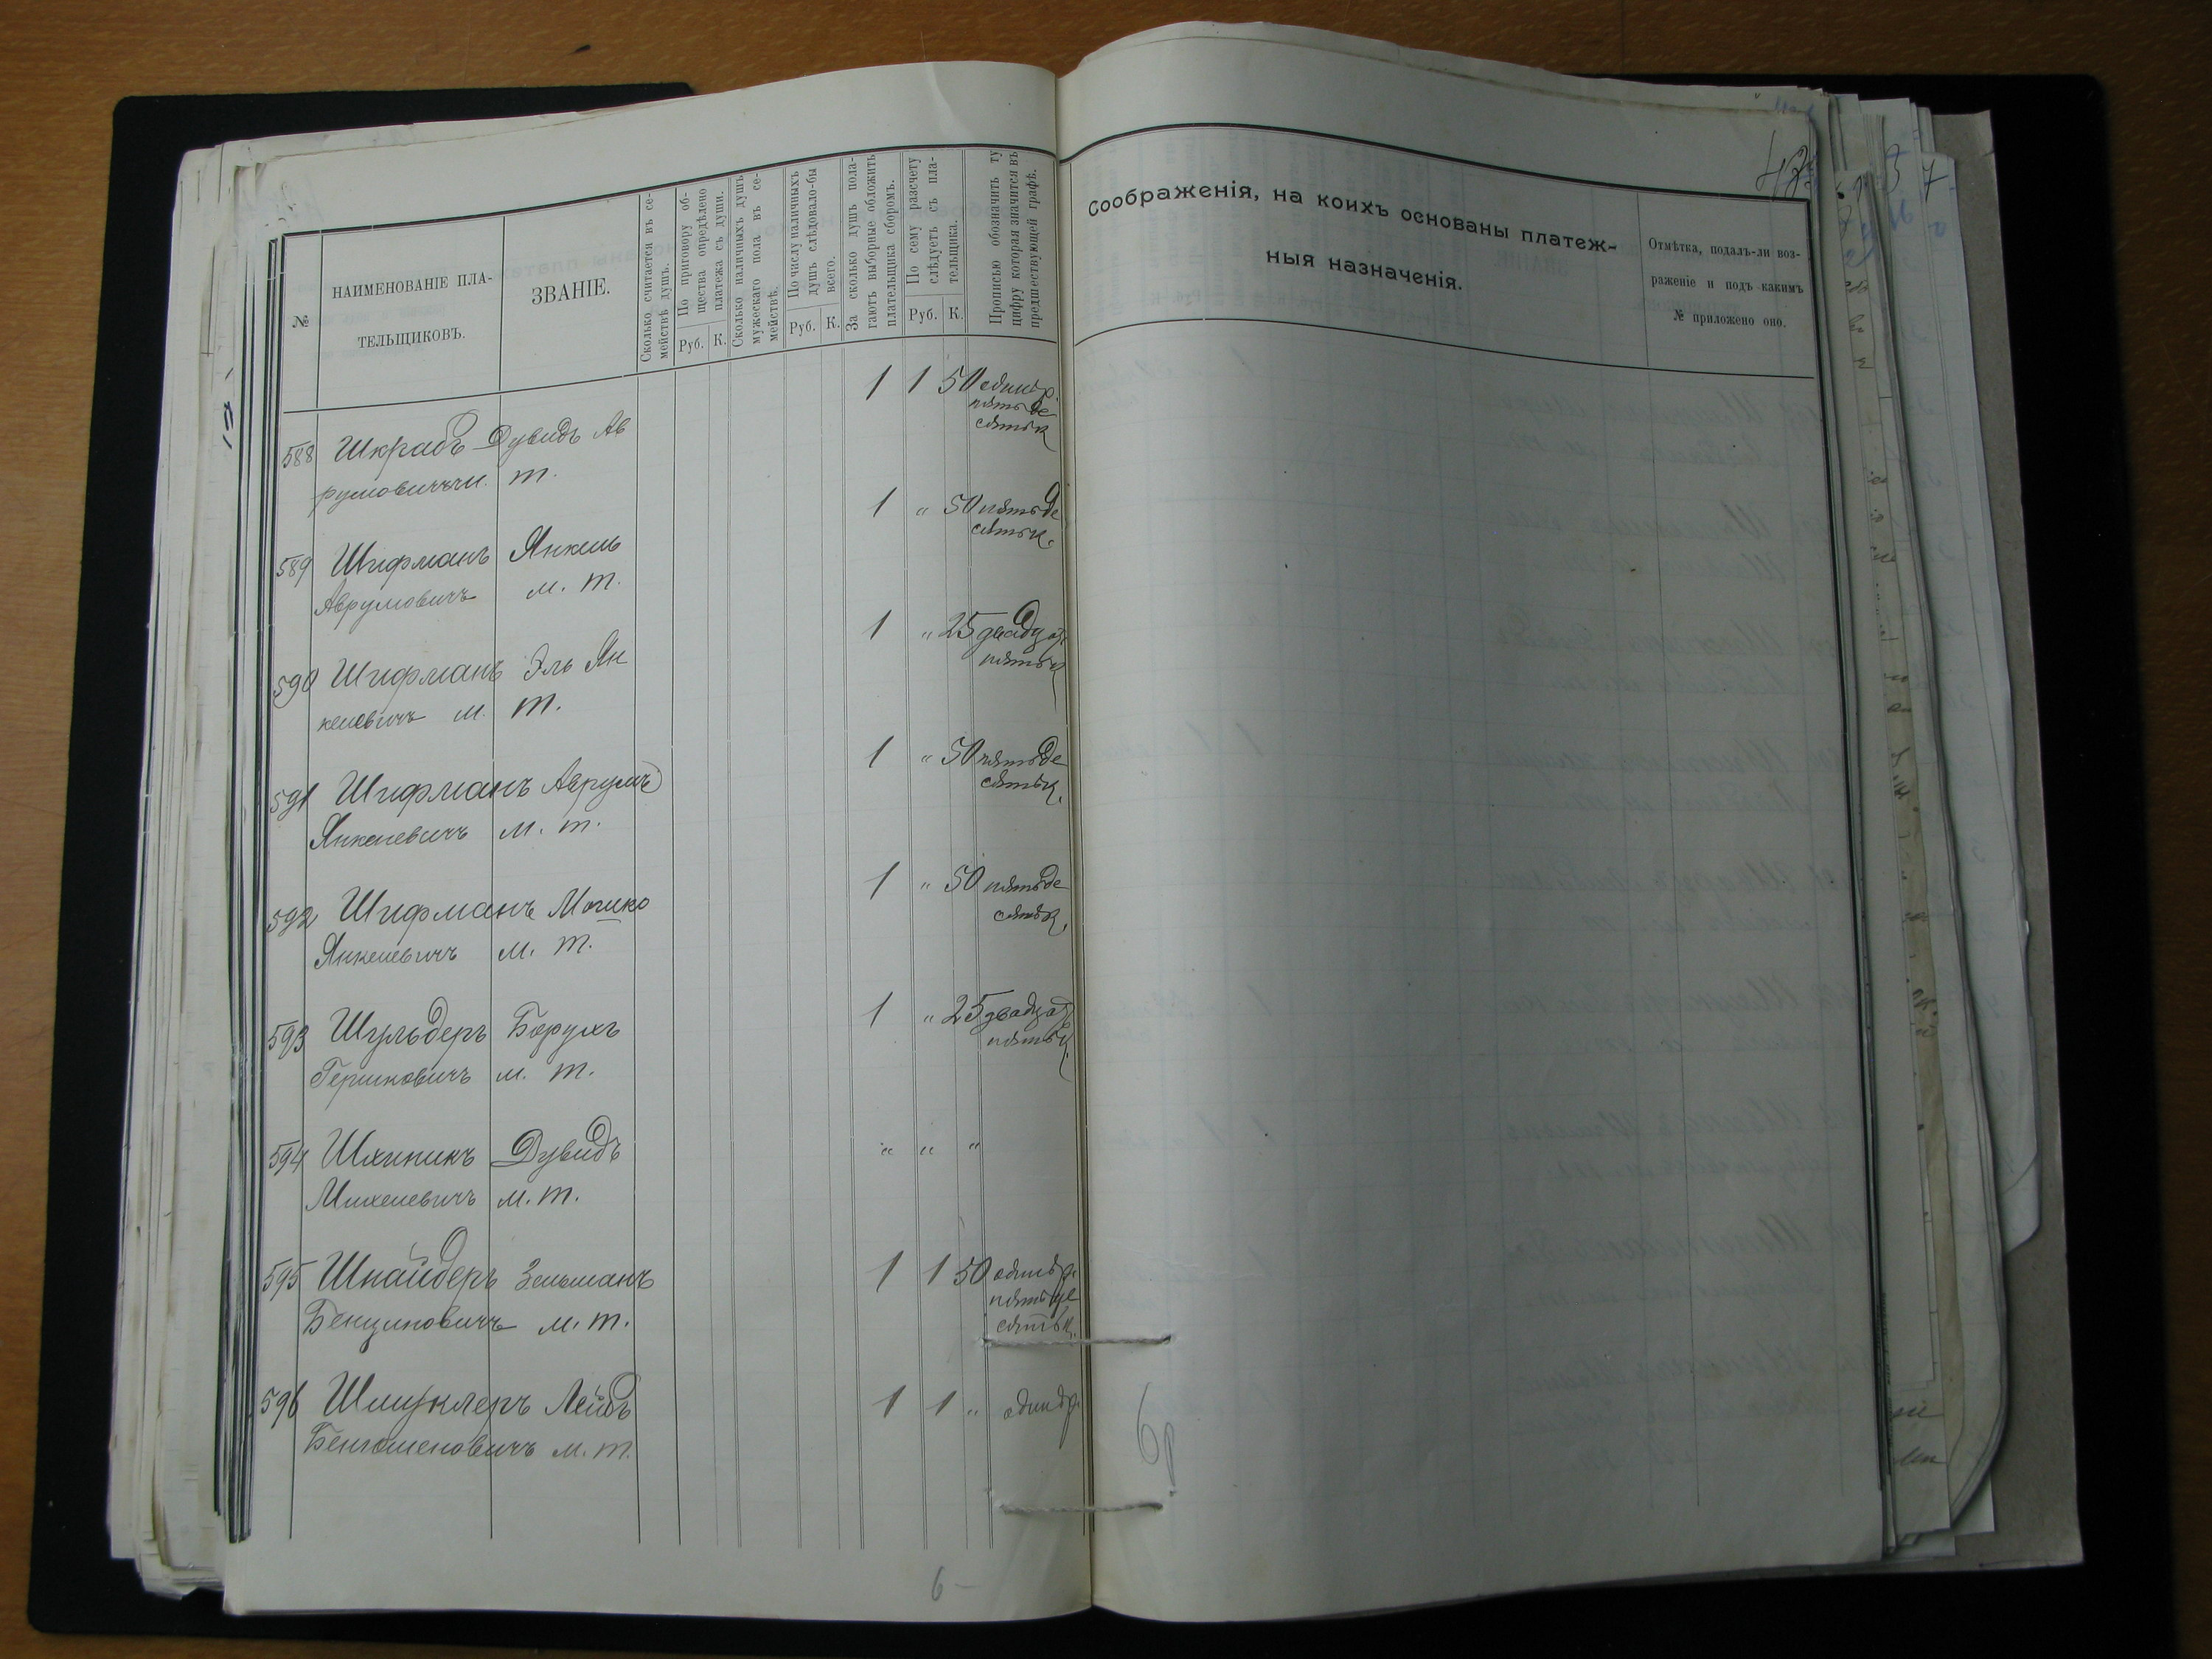 №
НАИМЕНОВАНІЕ ПЛА-
ТЕЛЬЩИКОВЪ.
ЗВАНІЕ.
Сколько считается въ се-
мействѣ душъ.
По приговору об-
щества опредѣлено
платежа съ души.
Руб. К.
Сколько наличныхъ душъ
мужескаго пола въ се-
мействѣ.
По числу наличныхъ
душъ слѣдовало-бы
всего.
Руб. К.
За сколько душъ пола-
гаютъ выборные обложить
плательщика сборомъ.
По сему разсчету
слѣдуетъ съ пла-
тельщика.
Руб. К.
Прописью обозначить ту
цифру которая значится въ
предшествующей графѣ.
588 Шкрабъ Дувидъ Ав 1 1 50 одинъ р.
румовичъ м. т. пятьде
сятьк
589 Шифманъ Янкель 1 " 50 пятьде
Аврумовичъ м. т. сятьк.
590 Шифманъ Эль Ян 1 " 25 двадцат
келевичъ м. т. пятьк
591 Шифманъ Аврумъ 1 " 50 пятьде
Янкелевичъ м. т. сятьк.
592 Шифманъ Мошко 1 " 50 пятьде
Янкелевичъ м. т. сятьк.
593 Шульдеръ Борухъ 1 " 25 двадцат
Гершковичъ м. т. пятьк.
594 Шхиникъ Дувидъ " " "
Михелевичъ м. т.
595 Шнайдеръ Зельманъ 1 1 50 одинъ р.
Бенционовичъ м. т. пятьде
сятьк.
596 Шмуклеръ Лейбъ 1 1 " одинъ р.
м. т.
6 —
Соображенія, на коихъ основаны платеж-
ныя назначенія.
Отмѣтка, подалъ-ли воз-
раженіе и подъ какимъ
№ приложено оно.
6р